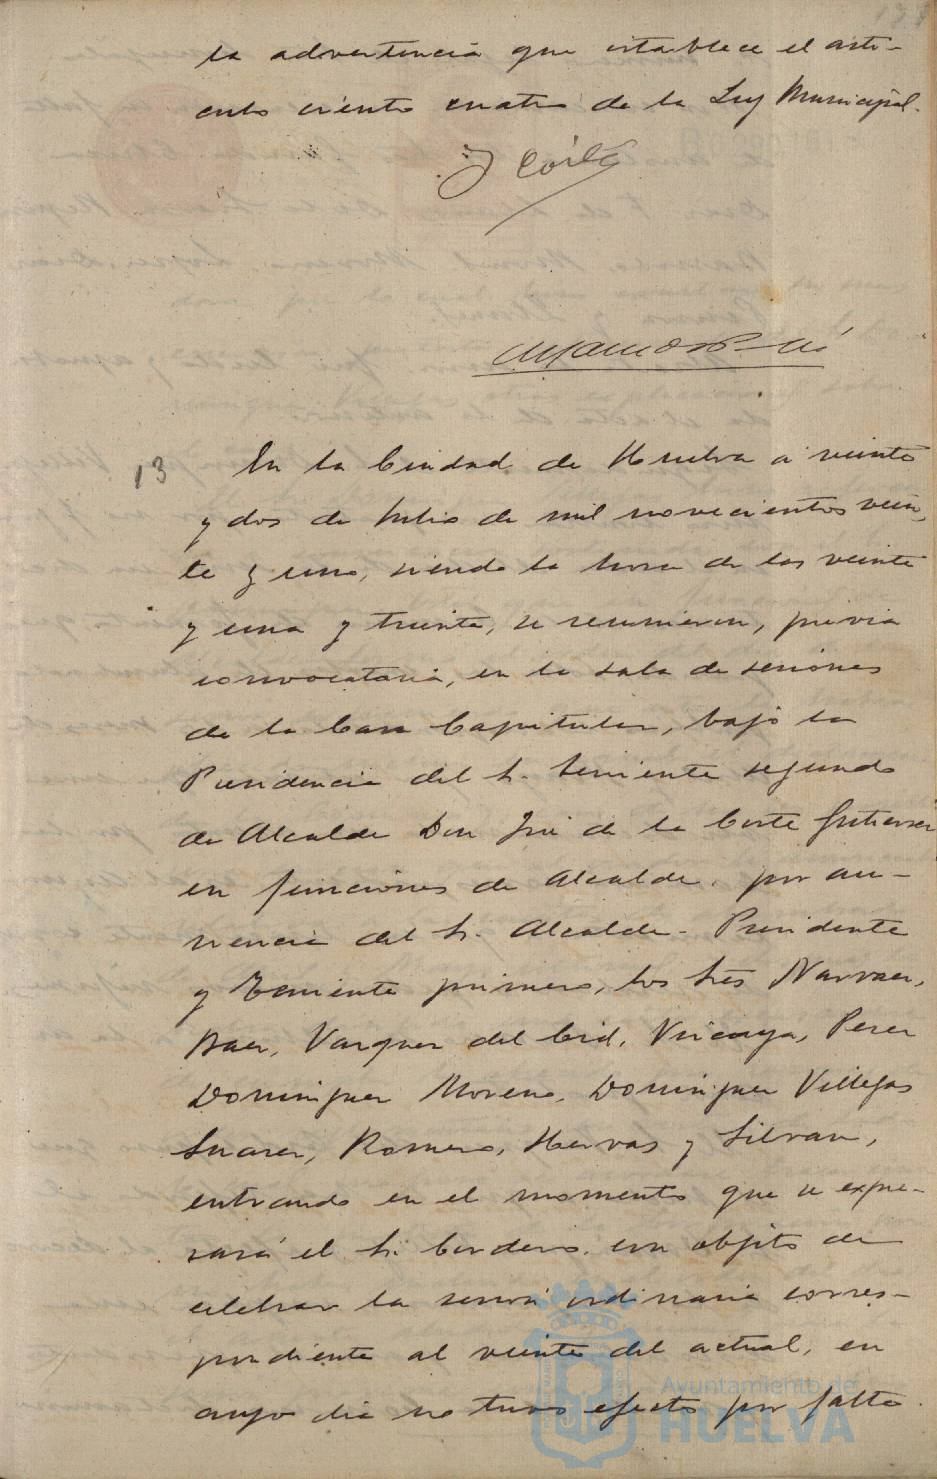 la advertencia que establece el arti-
culo ciento cuatro de la Ley Municipal.
J Corte
13 En la Ciudad de Huelva a veinte
y dos de Julio de mil novecientos vein-
te y uno, siendo la hora de las veinte
y una y treinta, se reunieron, previa
convocatoria, en la sala de sesiones
de la Casa Capitular, bajo la
Presidencia del Sr. Teniente segundo
de Alcalde Don José de la Corte Gutierrez
en funciones de Alcalde, por au-
sencia del Sr. Alcalde-Presidente
y Teniente primero, los Sres Narvaez,
Baez, Vazquez del Cid, Vizcaya, Perez
Dominguez Moreno, Dominguez Villegas
Suarez, Romero, Hervas y Silvan,
entrando en el momento que se expre-
sará el Sr. Cordero, con objeto de
celebrar la sesion ordinaria corres-
pondiente al veinte del actual, en
cuyo dia no tuvo efecto por falta
Ayuntamiento de
HUELVA